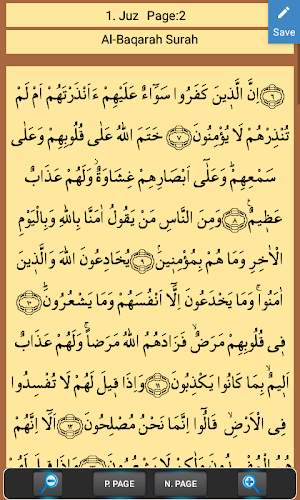 1. Juz   Page:2
Save
Al-Baqarah Surah
﴿٦﴾ اِنَّ الَّذٖينَ كَفَرُوا سَوَٓاءٌ عَلَيْهِمْ ءَاَنْذَرْتَهُمْ اَمْ لَمْ
تُنْذِرْهُمْ لَا يُؤْمِنُونَ ﴿٧﴾ خَتَمَ اللّٰهُ عَلٰى قُلُوبِهِمْ وَعَلٰى
سَمْعِهِمْۜ وَعَلٰٓى اَبْصَارِهِمْ غِشَاوَةٌۘ وَلَهُمْ عَذَابٌ
عَظٖيمٌ ﴿٨﴾ وَمِنَ النَّاسِ مَنْ يَقُولُ اٰمَنَّا بِاللّٰهِ وَبِالْيَوْمِ
الْاٰخِرِ وَمَا هُمْ بِمُؤْمِنٖينَۘ ﴿٩﴾ يُخَادِعُونَ اللّٰهَ وَالَّذٖينَ
اٰمَنُواۚ وَمَا يَخْدَعُونَ اِلَّٓا اَنْفُسَهُمْ وَمَا يَشْعُرُونَۜ ﴿١٠﴾
فٖى قُلُوبِهِمْ مَرَضٌۙ فَزَادَهُمُ اللّٰهُ مَرَضاًۚ وَلَهُمْ عَذَابٌ
اَلٖيمٌۙ بِمَا كَانُوا يَكْذِبُونَ ﴿١١﴾ وَاِذَا قٖيلَ لَهُمْ لَا تُفْسِدُوا
فِى الْاَرْضِۙ قَالُٓوا اِنَّمَا نَحْنُ مُصْلِحُونَ ﴿١٢﴾ اَلَٓا اِنَّهُمْ
هُمُ الْمُفْسِدُونَ وَلٰكِنْ لَا يَشْعُرُونَ ﴿١٣﴾ وَاِذَا قٖيلَ لَهُمْ
P. PAGE
N. PAGE